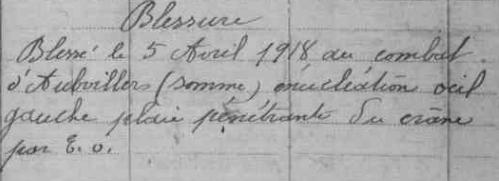 Blessure
Blessé le 5 Avril 1918 au combat
d'Aubvillers (Somme) énucléation oeil
gauche plaie pénétrante du crâne
par E. O.